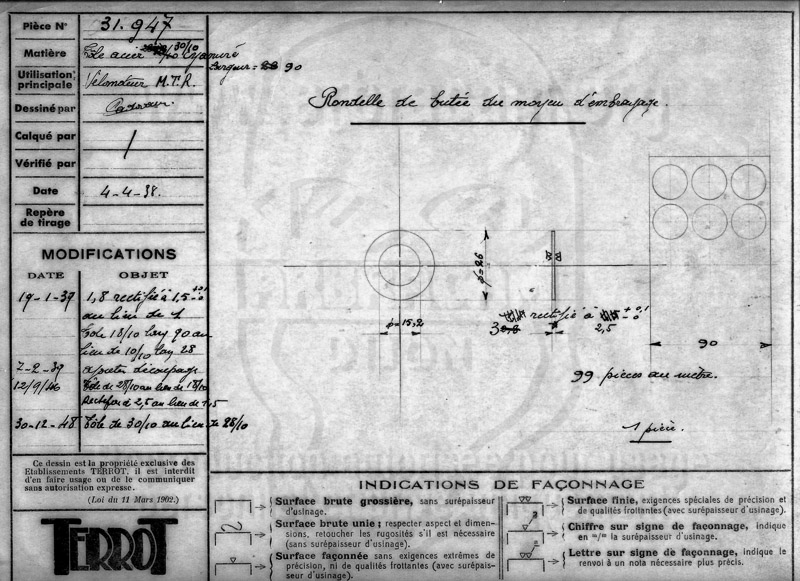 Pièce N° 31.947
Matière Tôle acier 30/10 cyanuré
Largeur = 90
Utilisation principale Vélomoteur M.T.R.
Dessiné par
Calqué par
Vérifié par
Date 4-4-38.
Repère de tirage
MODIFICATIONS
DATE OBJET
19-1-39 1,8 rectifié à 1,5 +0,1 -0
au lieu de 1
Tôle 18/10 larg 90 au
lieu de 10/10 larg 28
7-2-39 après découpage
12/9/46 Tôle de 28/10 au lieu de 18/10
Rectifié à 2,5 au lieu de 1,5
30-12-48 Tôle de 30/10 au lieu de 28/10
Ce dessin est la propriété exclusive des
Etablissements TERROT, il est interdit
d'en faire usage ou de le communiquer
sans autorisation expresse.
(Loi du 11 Mars 1902.)
TERROT
Rondelle de butée du moyeu d'embrayage.
φ=26
φ=15,2
3 rectifié à +0,1 -0
2,5
90
99 pièces au mètre.
1 pièce.
INDICATIONS DE FAÇONNAGE
Surface brute grossière, sans surépaisseur
d'usinage.
Surface brute unie; respecter aspect et dimen-
sions, retoucher les rugosités s'il est nécessaire
(sans surépaisseur d'usinage).
Surface façonnée sans exigences extrêmes de
précision, ni de qualités frottantes (avec surépais-
seur d'usinage).
Surface finie, exigences spéciales de précision et
de qualités frottantes (avec surépaisseur d'usinage).
Chiffre sur signe de façonnage, indique
en =/= la surépaisseur d'usinage.
Lettre sur signe de façonnage, indique le
renvoi à un nota nécessaire plus précis.